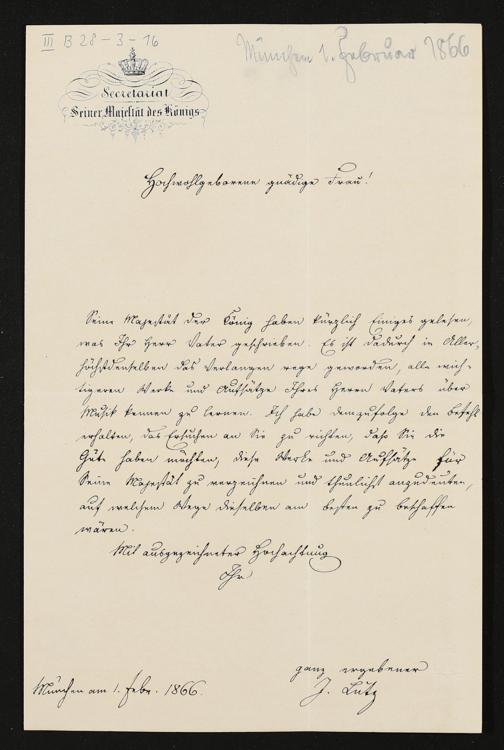 III B 28-3-16
München 1. Februar 1866
Secretariat
Seiner Majestät des Königs
Hochwohlgeborene gnädige Frau!
Seine Majestät der König haben kürzlich Einiges gelesen,
was Ihr Herr Vater geschrieben. Es ist dadurch in Aller-
höchstdenselben das Verlangen rege geworden, alle wich-
tigeren Werke und Aufsätze Ihres Herrn Vaters über
Musik kennen zu lernen. Ich habe demzufolge den Befehl
erhalten, das Ersuchen an Sie zu richten, daß Sie die
Güte haben möchten, diese Werke und Aufsätze für
Seine Majestät zu verzeichnen und thunlichst anzudeuten,
auf welchem Wege dieselben am besten zu beschaffen
wären.
Mit ausgezeichneter Hochachtung
Ihr
ganz ergebener
J. Lutz
München am 1. Febr. 1866.